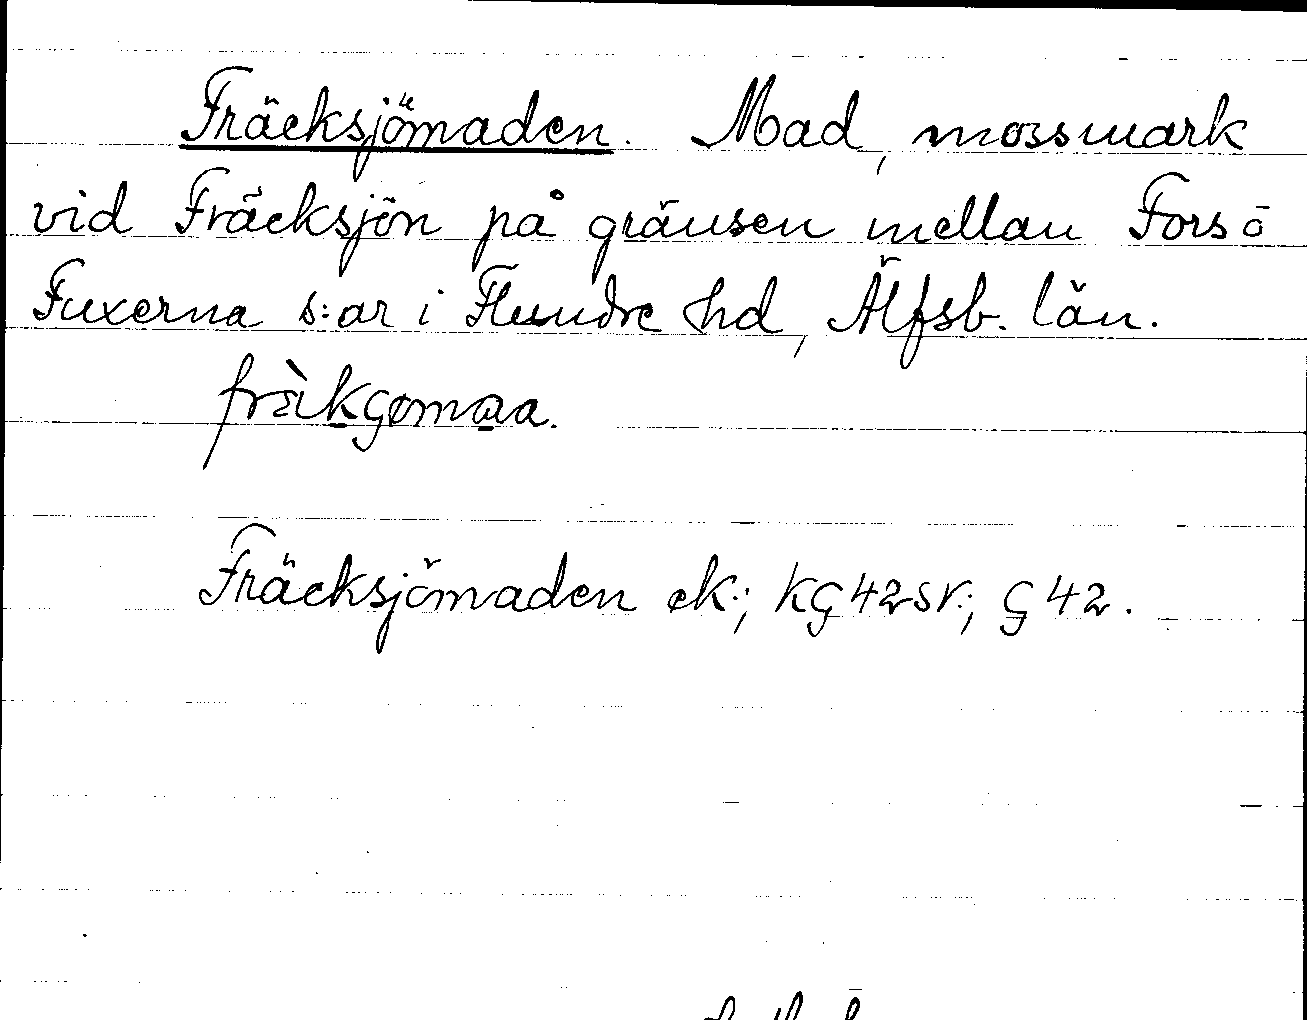 Fräcksjömaden. Mad, mossmark
vid Fräcksjön på gränsen mellan Fors o
Fuxerna s:ar i Flundre hd, Älfsb. län.
Fräcksjömaden ek.; KG42SV.; G 42.